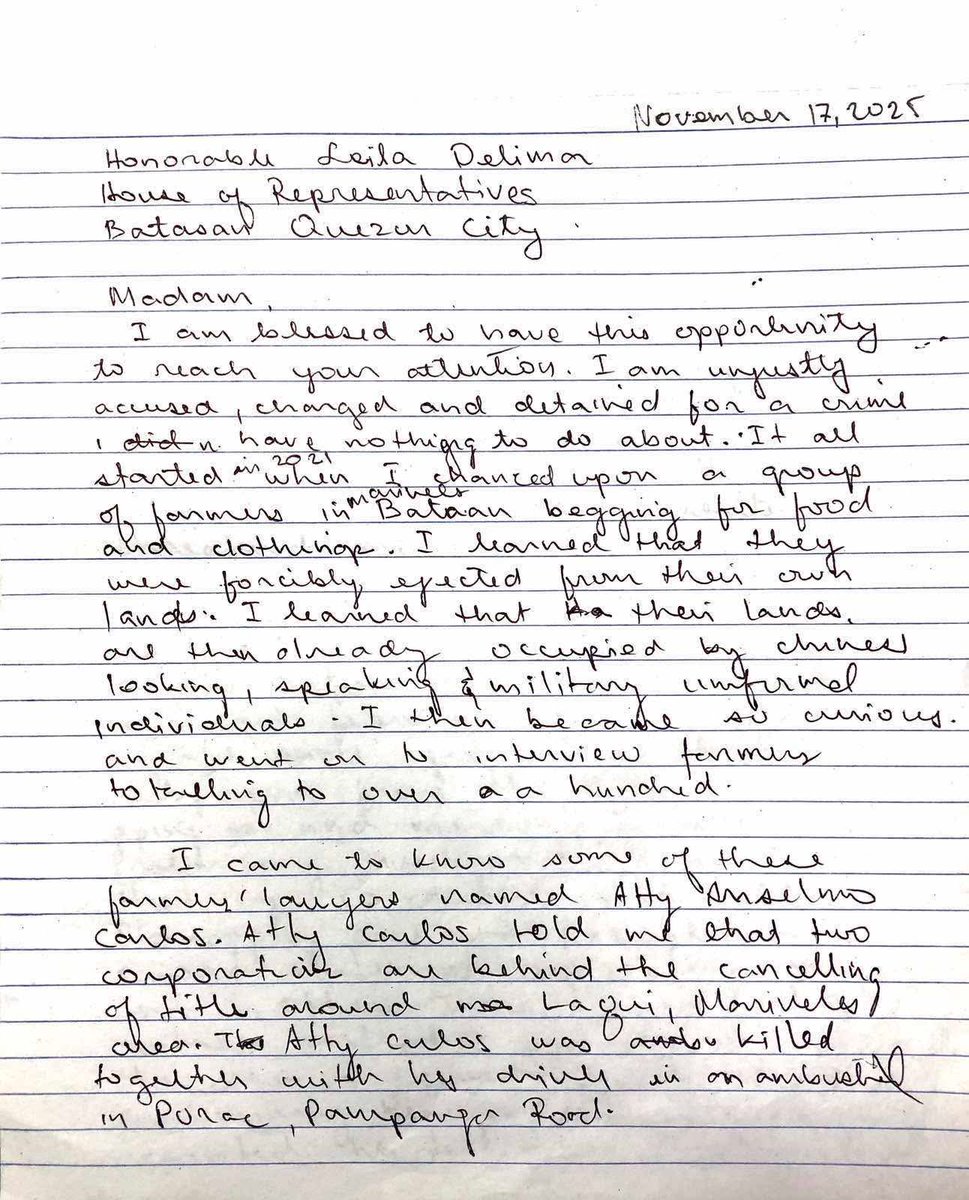 November 17, 2025
Honorable Leila Delima
House of Representatives
Batasan Quezon City
Madam,
I am blessed to have this opportunity
to reach your attention. I am unjustly
accused, charged and detained for a crime
i did n. have nothing to do about. It all
started in 2021 when I chanced upon a group
of farmers in marivels Bataan begging for food
and clothings. I learned that they
were forcibly ejected from their own
lands. I learned that their lands,
are then already occupied by chiness
looking, speaking & military uniformed
individuals. I then became so curious.
and went on to interview farmers
totalling to over a a hundred.
I came to know some of these
farmers' lawyers named Atty Anselmo
Carlos. Atty Carlos told me that two
corporation are behind the cancelling
of title around Laqui, Mariveles
area. Atty Carlos was killed
together with his driver in an ambush
in Porac, Pampanga Road.